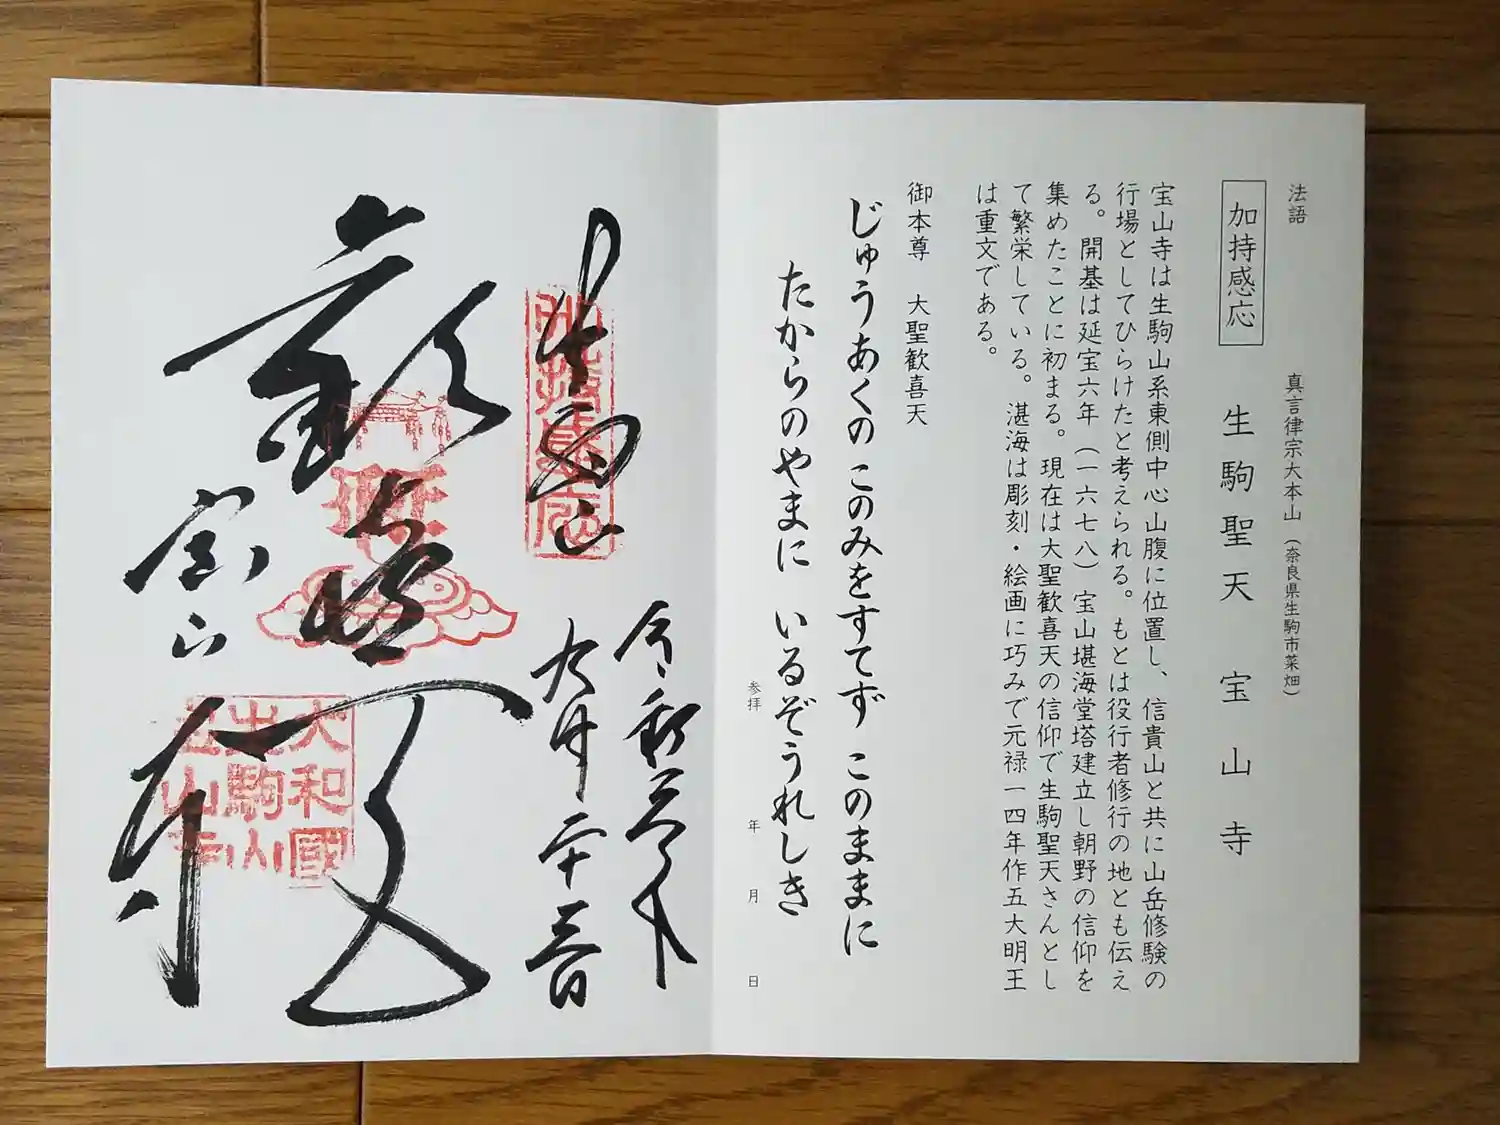 法語
真言律宗大本山（奈良県生駒市菜畑）
加持感応
生駒聖天　宝山寺
宝山寺は生駒山系東側中心山腹に位置し、信貴山と共に山岳修験の
行場としてひらけたと考えられる。もとは役行者修行の地とも伝え
る。開基は延宝六年（一六七八）宝山堪海堂塔建立し朝野の信仰を
集めたことに初まる。現在は大聖歓喜天の信仰で生駒聖天さんとし
て繁栄している。湛海は彫刻・絵画に巧みで元禄一四年作五大明王
は重文である。
御本尊　大聖歓喜天
じゅうあくの このみをすてず このままに
たからのやまに いるぞうれしき
参拝　年　月　日
生駒山
加持感応
令和三年
九月二十三日
歓喜天
宝山寺
大和國
生駒山
宝山寺